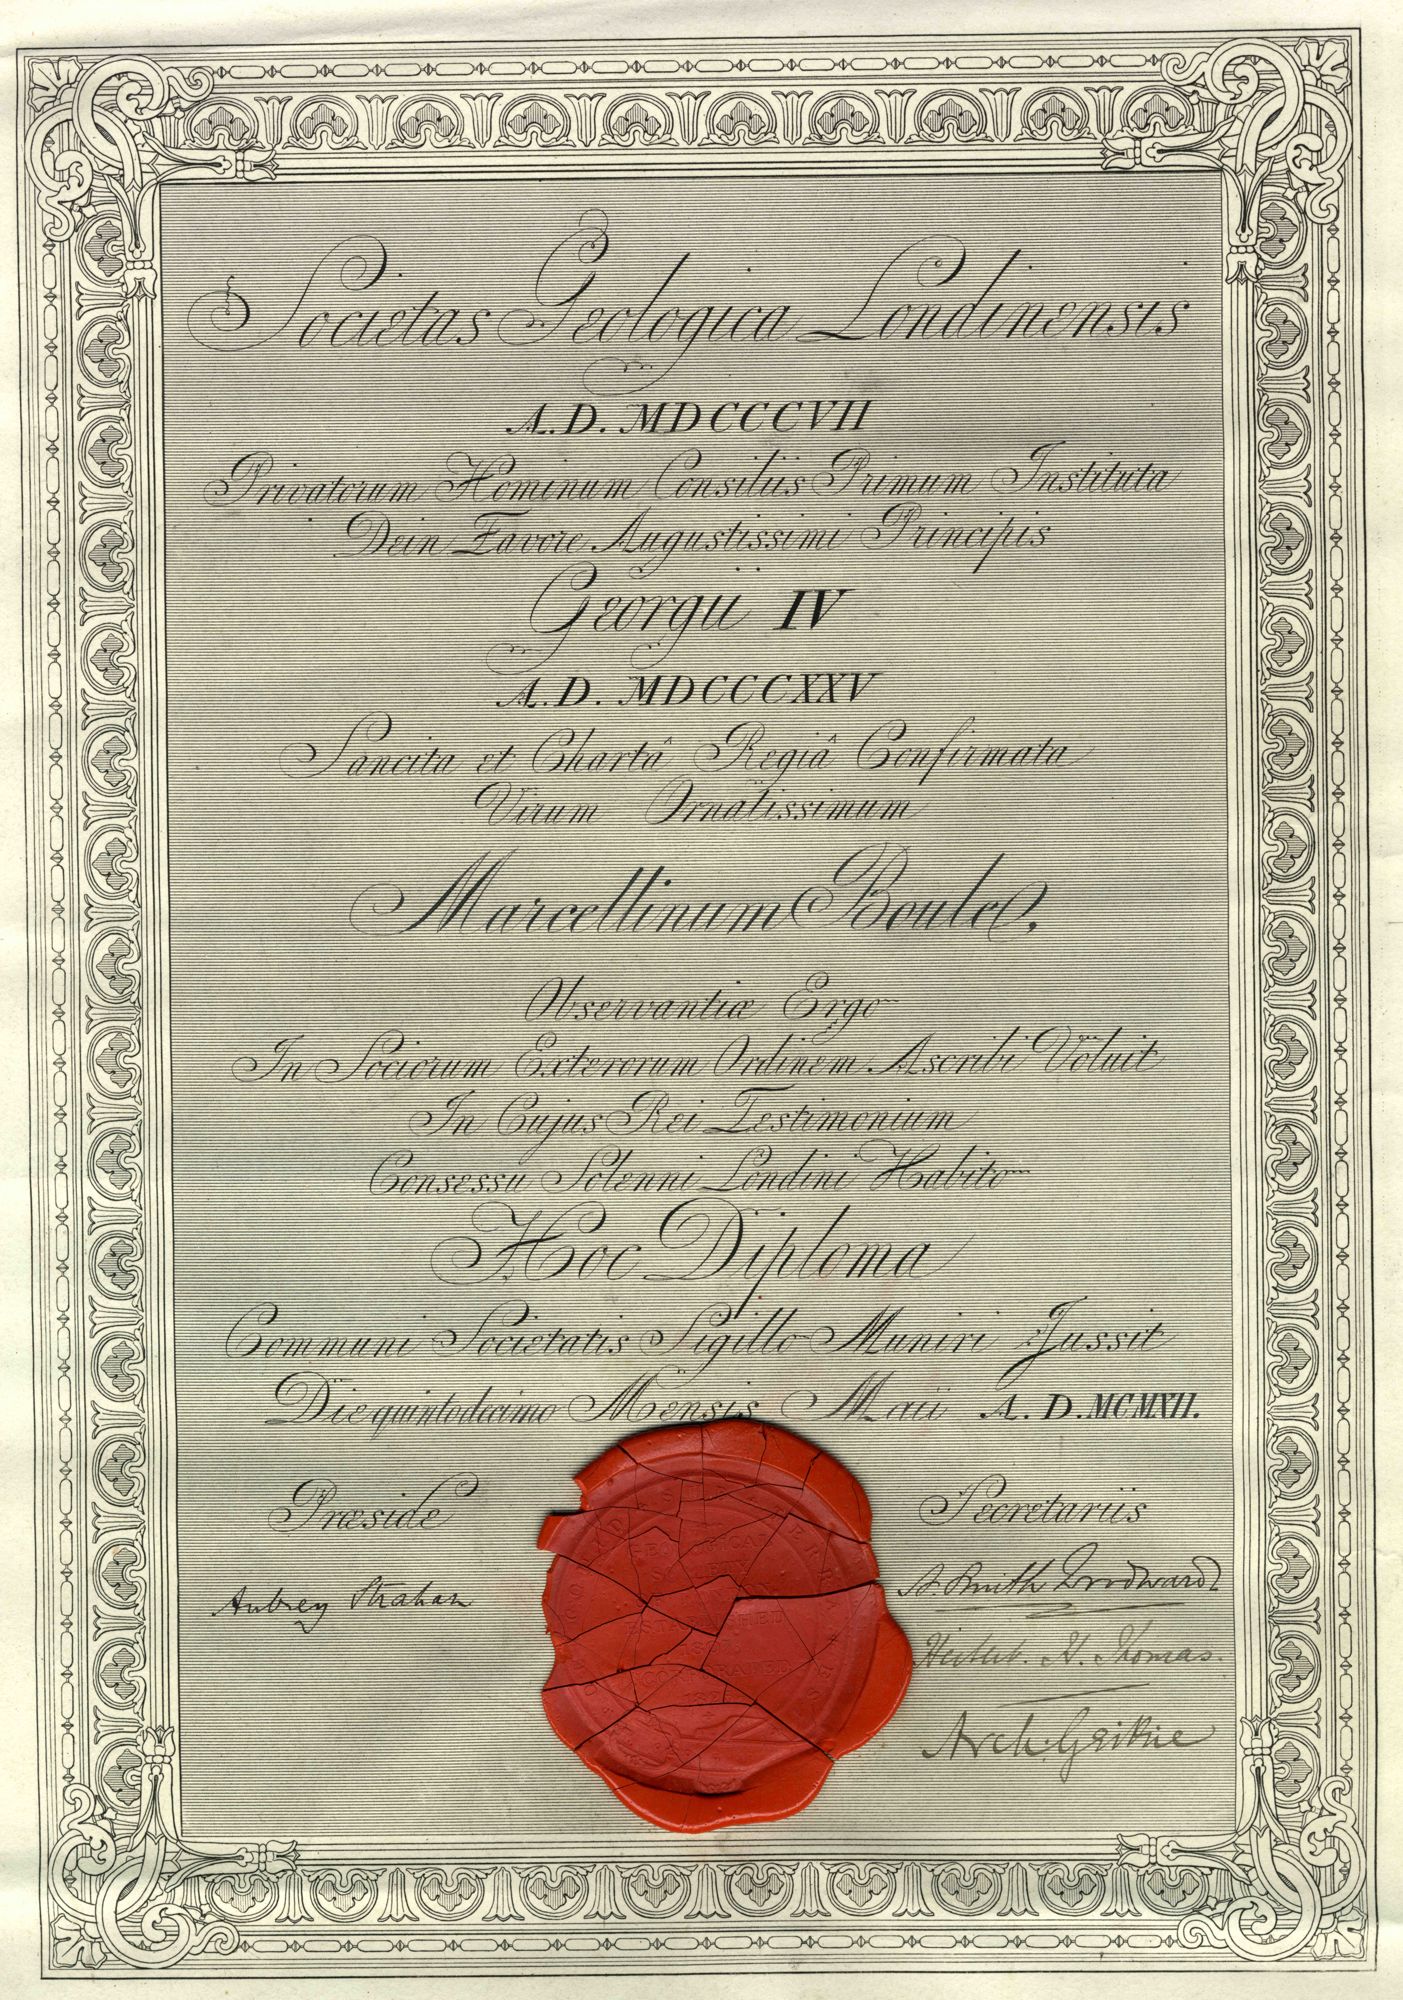 Societas Geologica Londinensis
A.D. MDCCCVII
Privatorum Hominum Consiliis Primum Instituta
Dein Favore Augustissimi Principis
Georgii IV
A.D. MDCCCXXV
Sancita et Chartâ Regiâ Confirmata
Virum Ornatissimum
Marcellinum Boule,
Observantiæ Ergo
In Sociorum Exterorum Ordinem Ascribi Voluit
In Cujus Rei Testimonium
Consessu Solenni Londini Habito
Hoc Diploma
Communi Societatis Sigillo Muniri Jussit
Die quintodecimo Mensis Maii A.D. MCMXII.
Præside
Secretariis
Aubrey Strahan
A. Smith Woodward
Herbert H. Thomas.
Arch. Geikie
GEOLOGICAL
SOCIETY
ESTABLISHED